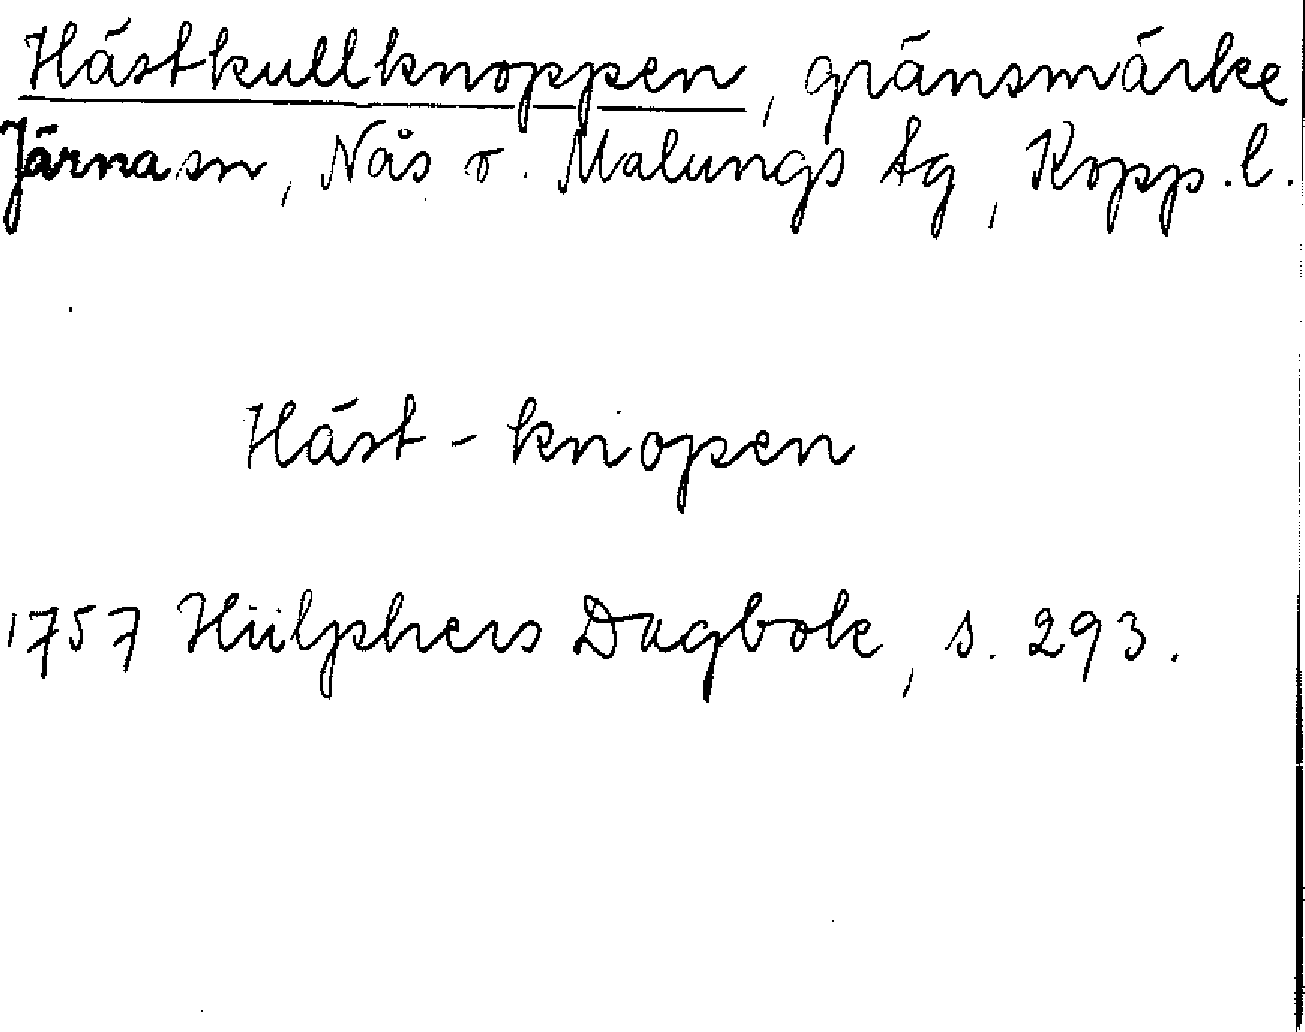 Hästkullknoppen, gränsmärke
Järna sn, Nås o. Malungs tg, Kopp. l.
Häst-knopen
1757 Hülphers Dagbok, s. 293.